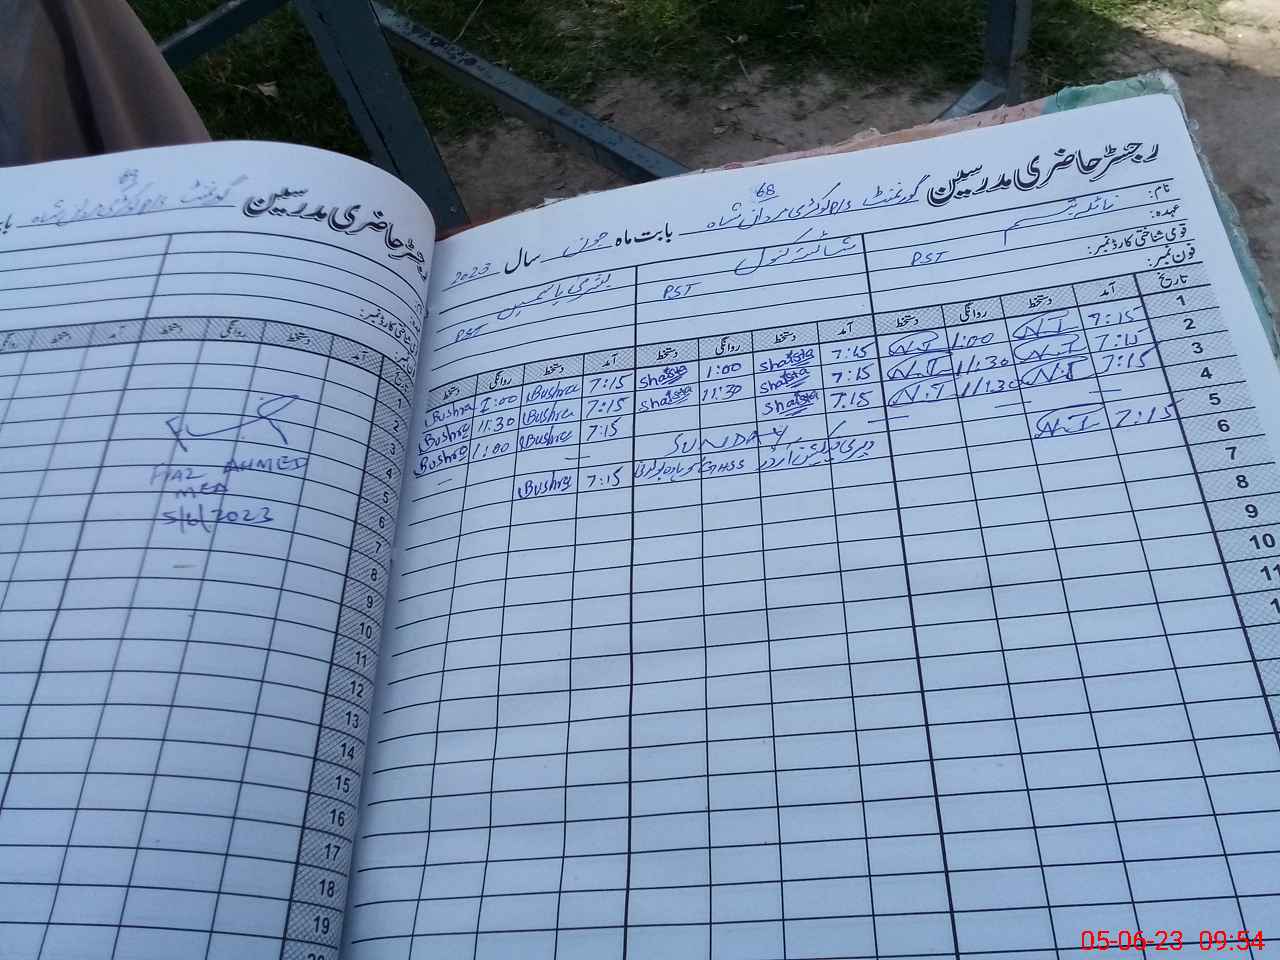 رجسٹر حاضری مدرسین گورنمنٹ
68
بابت ماہ جون سال 2023
نام: نائلہ تبسم
شائستہ کنول
بشریٰ یاسمین
عہدہ: PST
PST
PST
قومی شناختی کارڈ نمبر:
فون نمبر:
تاریخ آمد دستخط روانگی دستخط آمد دستخط روانگی دستخط آمد دستخط روانگی دستخط
1 7:15 N.T 1:00 N.T 7:15 Shaista 1:00 Shaista 7:15 Bushra 1:00 Bushra
2 7:15 N.T 11:30 N.T 7:15 Shaista 11:30 Shaista 7:15 Bushra 11:30 Bushra
3 7:15 N.T 11:30 N.T 7:15 Shaista 7:15 Bushra 1:00 Bushra
4 — — — SUNDAY — —
5 7:15 N.T GHSS 7:15 Bushra
6
7
8
9
10
11
رجسٹر حاضری مدرسین گورنمنٹ
68
شناختی کارڈ نمبر:
آمد دستخط روانگی دستخط آمد دستخط
1
2
3
4
5
6
7
8
9
10
11
12
13
14
15
16
17
18
19
20
AHMED
MEA
5/6/2023
05-06-23 09:54